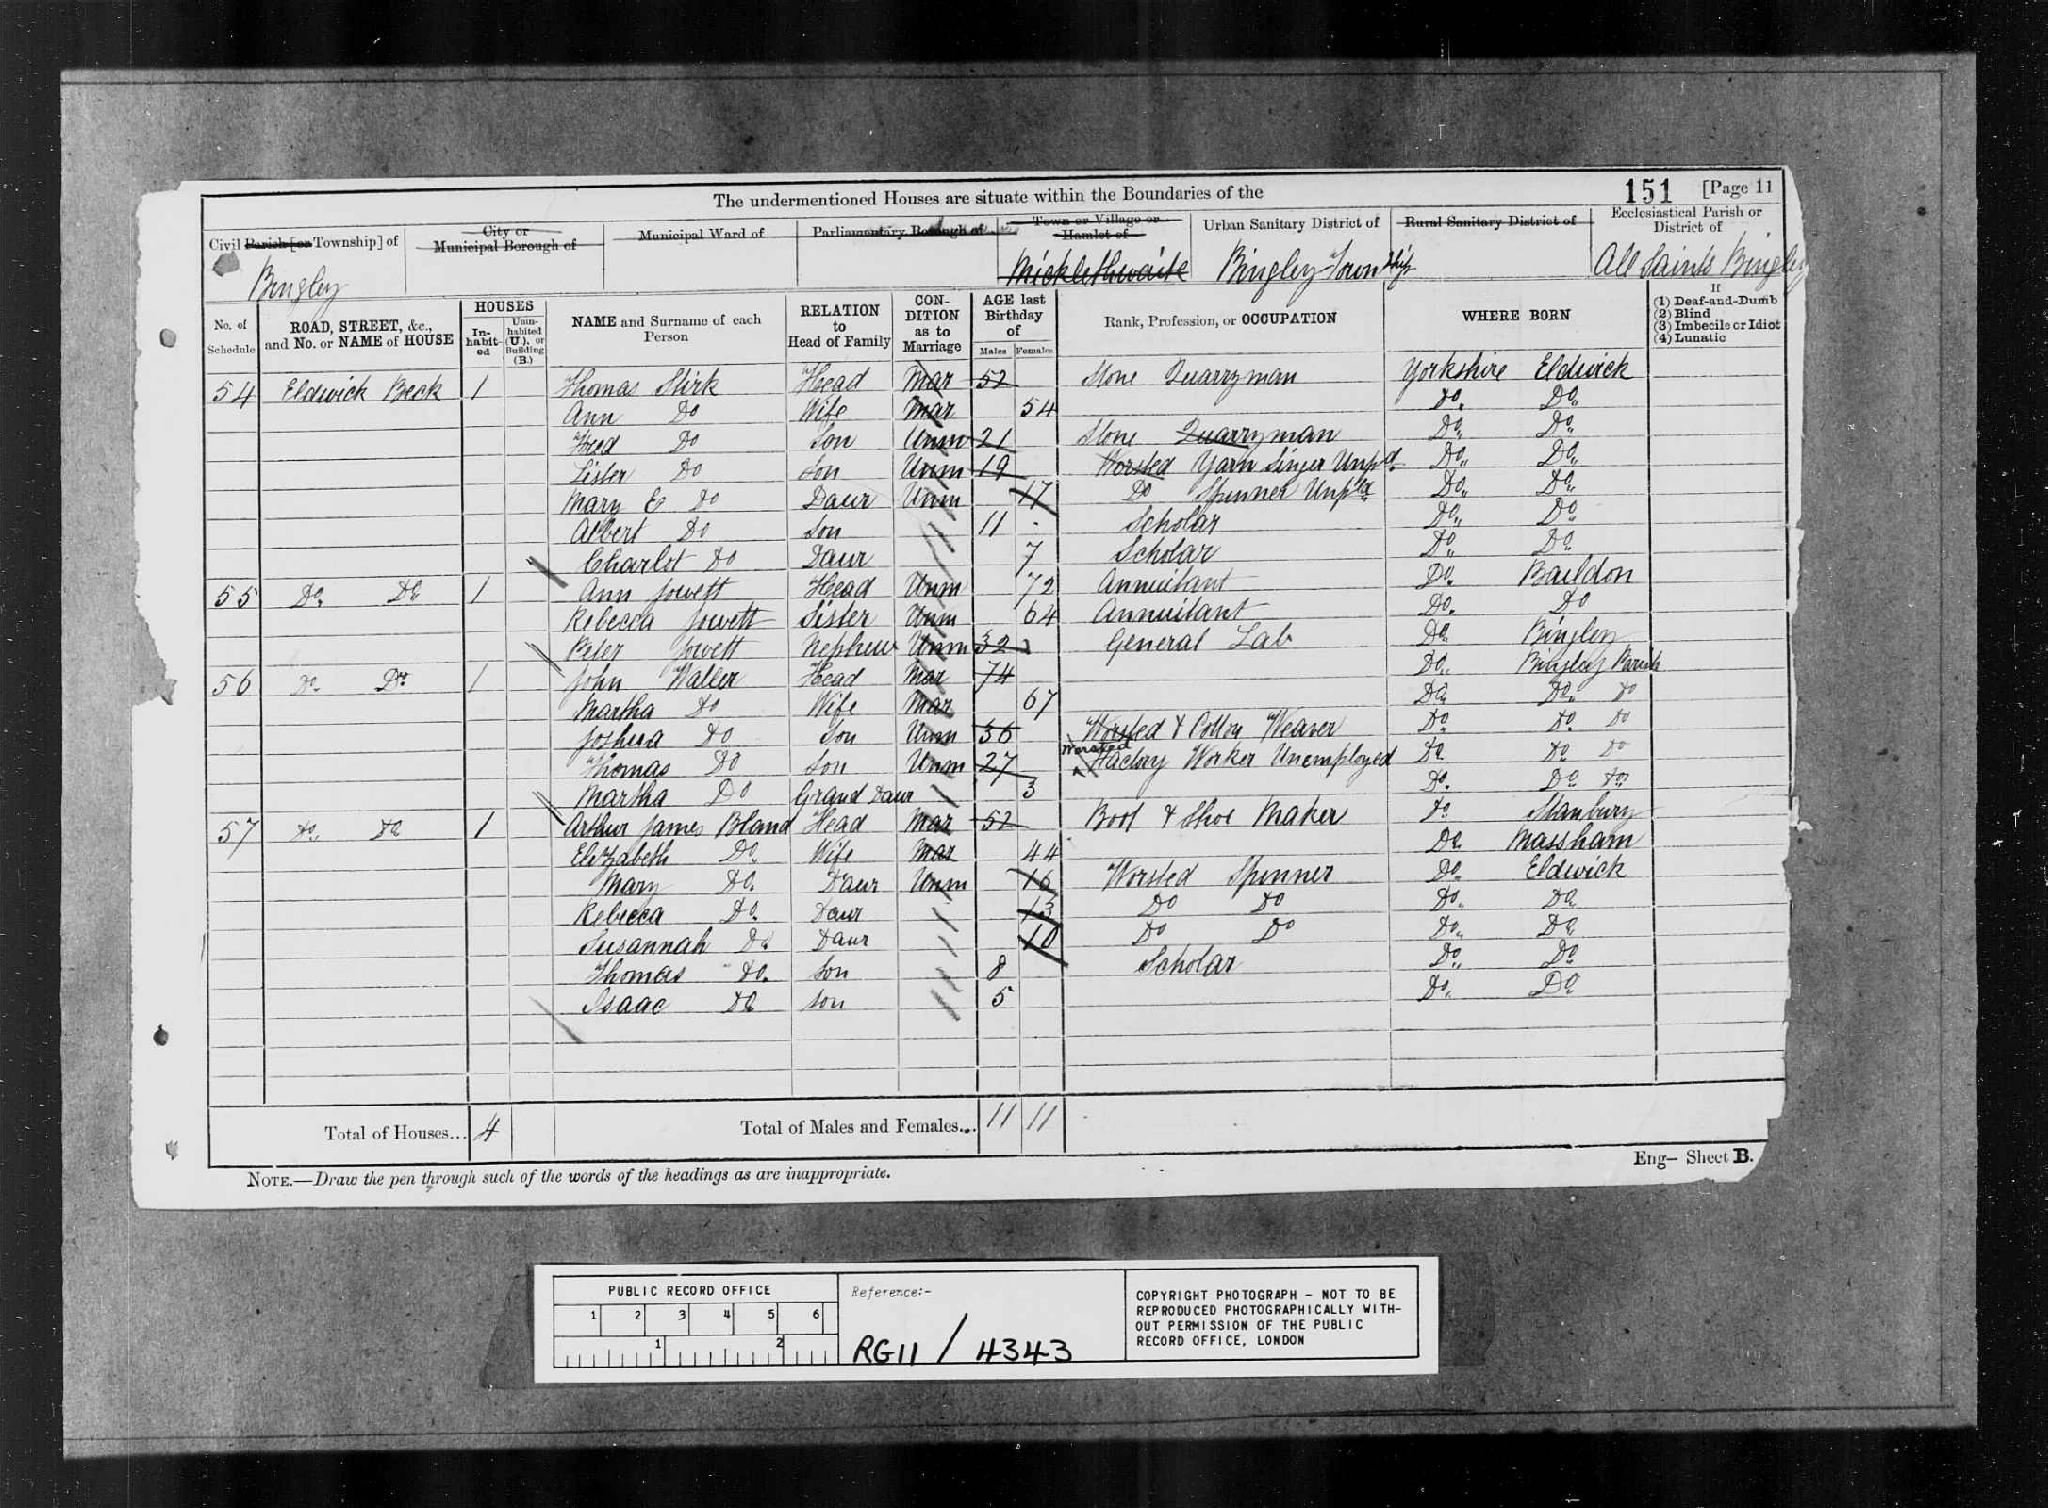 The undermentioned Houses are situate within the Boundaries of the 151 [Page 11
Civil Parish [or Township] of City or Municipal Borough of Municipal Ward of Parliamentary Borough of Town or Village or Hamlet of Urban Sanitary District of Rural Sanitary District of Ecclesiastical Parish or District of
Bingley Micklethwaite Bingley Township All Saints Bingley
No. of Schedule ROAD, STREET, &c., and No. or NAME of HOUSE HOUSES Inhabited Uninhabited (U), or Building (B.) NAME and Surname of each Person RELATION to Head of Family CONDITION as to Marriage AGE last Birthday of Males Females Rank, Profession, or OCCUPATION WHERE BORN If (1) Deaf-and-Dumb (2) Blind (3) Imbecile or Idiot (4) Lunatic
54 Eldwick Beck 1 Thomas Stirk Head Mar 52 Stone Quarryman Yorkshire Eldwick
Ann Do Wife Mar 54 Do. Do.
Fred Do Son Unm 21 Stone Quarryman Do. Do.
Lister Do Son Unm 19 Worsted Yarn Singer Unpd. Do. Do.
Mary E Do Daur Unm 17 Do Spinner Do. Do.
Albert Do Son 11 Scholar Do. Do.
Charlot Do Daur 7 Scholar Do. Do.
55 Do. Do. 1 Ann Jowett Head Unm 72 Annuitant Do. Baildon
Rebecca Jowett Sister Unm 64 Annuitant Do. Do
Peter Jowett Nephew Unm 32 General Lab Do. Bingley
56 Do. Do. 1 John Waller Head Mar 74 Do. Bingley Parish
Martha Do Wife Mar 67 Do. Do. Do
Joshua Do Son Unm 36 Worsted & Cotton Weaver Do. Do. Do
Thomas Do Son Unm 27 Worsted Factory Worker Unemployed Do Do Do
Martha Do Grand Daur 3 Do. Do Do
57 Do. Do 1 Arthur James Bland Head Mar 52 Boot & Shoe Maker Do Stanbury
Elizabeth Do. Wife Mar 44 Do. Massham
Mary Do. Daur Unm 16 Worsted Spinner Do. Eldwick
Rebecca Do. Daur 13 Do Do Do. Do.
Susannah Do. Daur 10 Do Do Do. Do.
Thomas Do. Son 8 Scholar Do. Do
Isaac Do Son 5 Do. Do
Total of Houses... 4 Total of Males and Females... 11 11
Eng- Sheet B.
NOTE.—Draw the pen through such of the words of the headings as are inappropriate.
PUBLIC RECORD OFFICE
1 2 3 4 5 6
1 2
Reference:-
RG11 / 4343
COPYRIGHT PHOTOGRAPH - NOT TO BE
REPRODUCED PHOTOGRAPHICALLY WITH-
OUT PERMISSION OF THE PUBLIC
RECORD OFFICE, LONDON